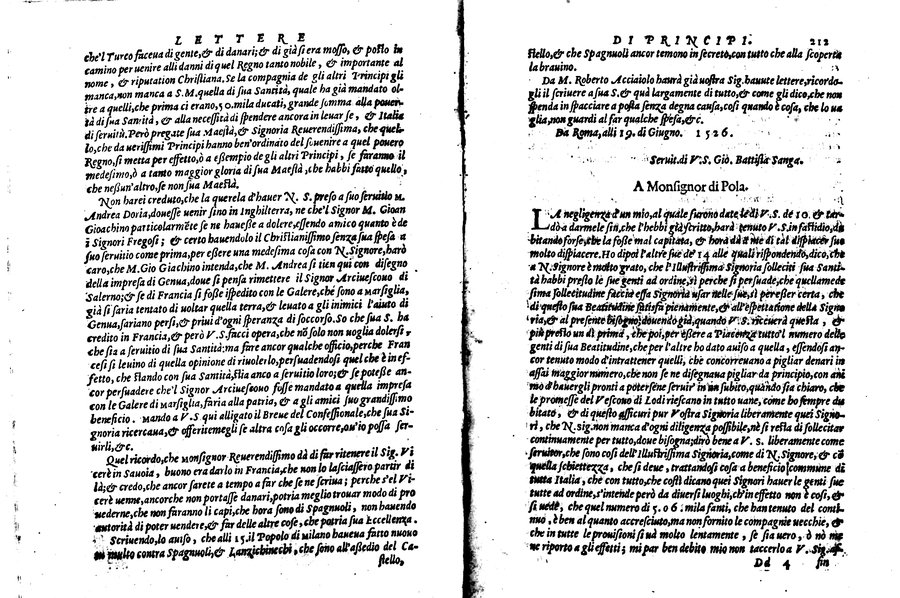 LETTERE
che'l Turco faceua di gente, & di danari; & di già si era mosso, & posto in
camino per uenire alli danni di quel Regno tanto nobile, & importante al
nome, & riputation Christiana. Se la compagnia de gli altri Principi gli
manca, non manca a S.M. quella di sua Santità, quale ha già mandato ol-
tre a quelli, che prima ci erano, 50. mila ducati, grande somma alla pouer-
tà di sua Santità, & alla necessità di spendere ancora in leuar se, & Italia
di seruitù. Però pregate sua Maestà, & Signoria Reuerendissima, che quel-
lo, che da uerissimi Principi hanno ben'ordinato del souenir a quel pouero
Regno, si metta per effetto, ò a essempio de gli altri Principi, se faranno il
medesimo, ò a tanto maggior gloria di sua Maestà, che habbi fatto quello,
che nessun'altro, se non sua Maestà.
Non harei creduto, che la querela d'hauer N. S. preso a suo seruitio M.
Andrea Doria, douesse uenir sino in Inghilterra, ne che'l Signor M. Gioan
Gioachino particolarmēte se ne hauesse a dolere, essendo amico quanto è de
i Signori Fregosi; & certo hauendolo il Christianissimo senza sua spesa a
suo seruitio come prima, per essere una medesima cosa con N. Signore, harò
caro, che M. Gio Giachino intenda, che M. Andrea si tien qui con disegno
della impresa di Genua, doue si pensa rimettere il Signor Arciuescouo di
Salerno; & se di Francia si fosse ispedito con le Galere, che sono a Marsiglia,
già si saria tentato di uoltar quella terra, & leuato a gli inimici l'aiuto di
Genua, sariano persi, & priui d'ogni speranza di soccorso. So che sua S. ha
credito in Francia, & però V.S. facci opera, che nō solo non uoglia dolersi,
che sia a seruitio di sua Santità: ma fare ancor qualche officio, perche Fran
cesi si leuino di quella opinione di riuolerlo, persuadendosi quel che è in ef-
fetto, che stando con sua Santità, stia anco a seruitio loro; & se potesse an-
cor persuadere che'l Signor Arciuescouo fosse mandato a quella impresa
con le Galere di Marsiglia, faria alla patria, & a gli amici suo grandissimo
beneficio. Mando a V.S qui alligato il Breue del Confessionale, che sua Si-
gnoria ricercaua, & offeritemegli se altra cosa gli occorre, ou'io possa ser-
uirli, &c.
Quel ricordo, che Monsignor Reuerendissimo dà di far ritener il Sig. Vi
cerè in Sauoia, buono era darlo in Francia, che non lo lasciassero partir di
là; & credo, che ancor sarete a tempo a far che se ne scriua; perche s'el Vi-
cerè uenne, ancorche non portasse danari, potria meglio trouar modo di pro
uederne, che non faranno li capi, che hora sono di Spagnuoli, non hauendo
autorità di poter uendere, & far delle altre cose, che potria sua Eccellenza.
Scriuendo, lo auiso, che alli 15. il Popolo di Milano haueua fatto nuouo
tumulto contra Spagnuoli, & Lanzichinechi, che sono all'assedio del Ca-
stello,
DI PRINCIPI. 212
stello, & che Spagnuoli ancor temono in secreto, con tutto che alla scoperta
la brauino.
Da M. Roberto Acciaiolo haurà già uostra Sig. hauute lettere, ricordo-
gli il scriuere a sua S, & quà largamente di tutto, & come gli dico, che non
spenda in spacciare a posta senza degna causa, così quando è cosa, che lo ua
glia, non guardi al far qualche spesa, &c.
Da Roma, alli 19. di Giugno. 1526.
Seruit. di V.S. Giò. Battista Sanga.
A Monsignor di Pola.
LA negligenza d'un mio, al quale furono date le di V.S. de 10. & tar-
dò a darmele sin, che l'hebbi già scritto, harà tenuto V.S. in fastidio, du
bitando forse, che la fosse mal capitata, & hora dà a me di tal dispiacer suo
molto dispiacere. Ho dipoi l'altre sue de 14 alle quali rispondendo, dico, che
a N. Signore è molto grato, che l'Illustrissima Signoria solleciti sua Santi-
tà habbi presto le sue genti ad ordine, sì perche si persuade, che quella mede
sima sollecitudine faccia essa Signoria usar nelle sue, sì per esser certa, che
di questo sua Beatitudine satisfa pienamente, & all'espettatione della Signo
ria, & al presente bisogno; douendo già, quando V.S. riceuerà questa, &
più presto un dì prima, che poi, per essere a Piacenza tutto'l numero delle
genti di sua Beatitudine, che per l'altre ho dato auiso a quella, essendosi an-
cor tenuto modo d'intrattener quelli, chè concorreuano a pigliar denari in
assai maggior numero, che non se ne disegnaua pigliar da principio, con ani
mo d'hauergli pronti a potersene seruir' in un subito, quando sia chiaro, che
le promesse del Vescouo di Lodi riescano in tutto uane, come ho sempre du
bitato, & di questo assicuri pur Vostra Signoria liberamente quei Signo-
ri, che N. sig. non manca d'ogni diligenza possibile, nè si resta di sollecitar
continuamente per tutto, doue bisogna; dirò bene a V. S. liberamente come
seruitor, che sono così dell'Illustrissima Signoria, come di N. Signore, & cō
quella schiettezza, che si deue, trattandosi cosa a beneficio commune di
tutta Italia, che con tutto, che così dicano quei Signori hauer le genti sue
tutte ad ordine, s'intende però da diuersi luoghi, ch'in effetto non è così, &
si uede, che quel numero di 5. o 6. mila fanti, che han tenuto del conti-
nuo, è ben al quanto accresciuto, ma non fornito le compagnie uecchie, &
che in tutte le prouisioni si uà molto lentamente, se sia uero, ò nò me
ne riporto a gli effetti; mi par ben debito mio non taccerlo a V. Sig. af-
Dd 4 fin